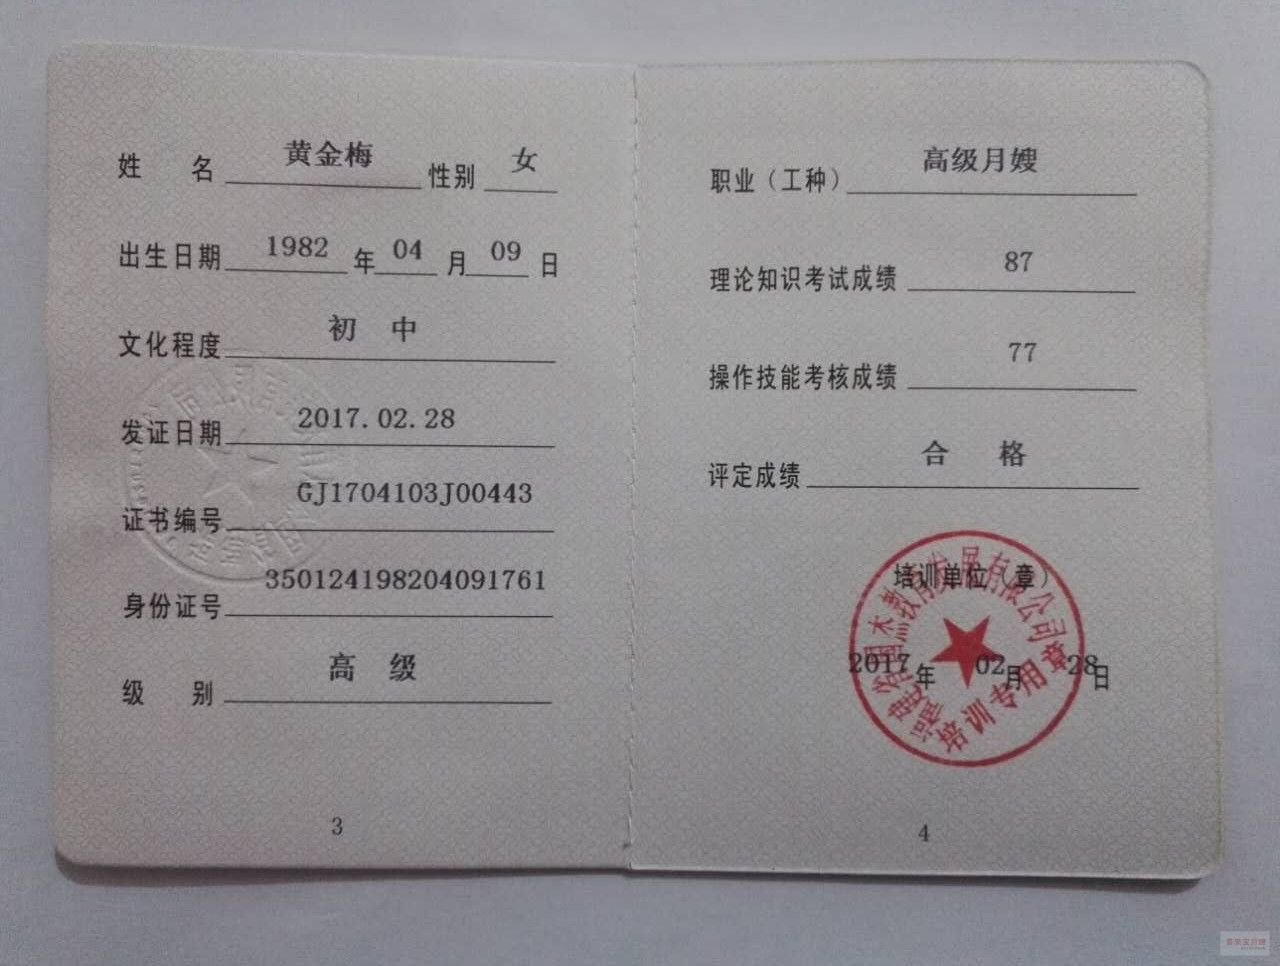 姓 名 黄金梅 性别 女
出生日期 1982 年 04 月 09 日
文化程度 初 中
发证日期 2017.02.28
证书编号 GJ1704103J00443
身份证号 350124198204091761
级 别 高 级
3
职业（工种） 高级月嫂
理论知识考试成绩 87
操作技能考核成绩 77
评定成绩 合 格
培训单位（章）
教育发展有限公司
2017 年 02 月 28 日
培训专用章
4